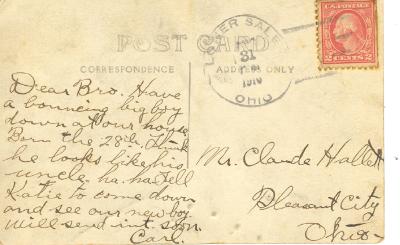 POST CARD
CORRESPONDENCE
ADDRESS ONLY
LOWER SALEM
31
1910
OHIO
U.S. POSTAGE
2 CENTS 2
Dear Bro. Have
a bouncing big boy
down at our house
Born the 28th. Think
he looks like his
uncle. ha. ha. tell
Katie to come down
and see our new boy.
will send int. soon
Carl.
Mr. Claude Hallett
Pleasant City
Ohio